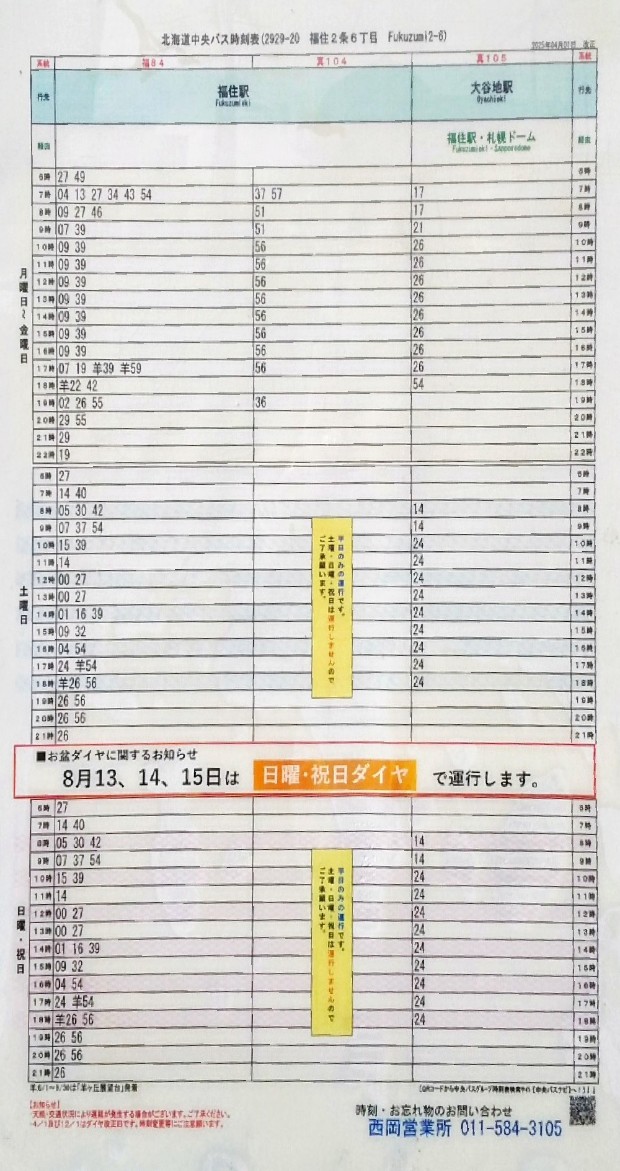 北海道中央バス時刻表(2929-20 福住2条6丁目 Fukuzumi2-6)
2025年04月01日 改正
系統 福84 真104 真105 系統
行先 福住駅 大谷地駅 行先
Fukuzumieki Oyachieki
経由 福住駅・札幌ドーム 経由
Fukuzumieki・Sapporodome
月曜日~金曜日
6時 27 49 6時
7時 04 13 27 34 43 54 37 57 17 7時
8時 09 27 46 51 17 8時
9時 07 39 51 21 9時
10時 09 39 56 26 10時
11時 09 39 56 26 11時
12時 09 39 56 26 12時
13時 09 39 56 26 13時
14時 09 39 56 26 14時
15時 09 39 56 26 15時
16時 09 39 56 26 16時
17時 07 19 羊39 羊59 56 26 17時
18時 羊22 42 54 18時
19時 02 26 55 36 19時
20時 29 55 20時
21時 29 21時
22時 19 22時
土曜日
6時 27 6時
7時 14 40 7時
8時 05 30 42 14 8時
9時 07 37 54 14 9時
10時 15 39 24 10時
11時 14 24 11時
12時 00 27 24 12時
13時 00 27 24 13時
14時 01 16 39 24 14時
15時 09 32 24 15時
16時 04 54 24 16時
17時 24 羊54 24 17時
18時 羊26 56 24 18時
19時 26 56 19時
20時 26 56 20時
21時 26 21時
平日のみの運行です。
土曜・日曜・祝日は運行しませんので
ご了承願います。
■お盆ダイヤに関するお知らせ
8月13、14、15日は 日曜・祝日ダイヤ で運行します。
日曜・祝日
6時 27 6時
7時 14 40 7時
8時 05 30 42 14 8時
9時 07 37 54 14 9時
10時 15 39 24 10時
11時 14 24 11時
12時 00 27 24 12時
13時 00 27 24 13時
14時 01 16 39 24 14時
15時 09 32 24 15時
16時 04 54 24 16時
17時 24 羊54 24 17時
18時 羊26 56 24 18時
19時 26 56 19時
20時 26 56 20時
21時 26 21時
平日のみの運行です。
土曜・日曜・祝日は運行しませんので
ご了承願います。
羊:6/1~9/30は「羊ヶ丘展望台」発着
QRコードから中央バスグループ時刻表検索サイト【中央バスナビ】へ!
【お知らせ】
・天候・交通状況により遅延が発生する場合がございます。ご了承ください。
・4/1及び12/1はダイヤ改正日です。時刻変更等にご注意願います。
時刻・お忘れ物のお問い合わせ
西岡営業所 011-584-3105